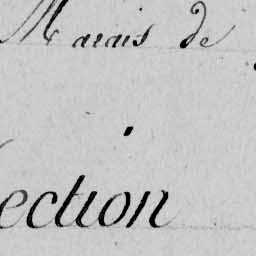 Marais de
ection